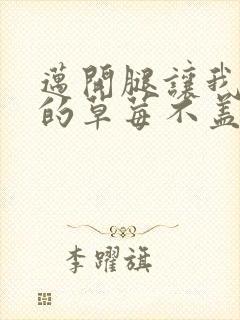 邁開腿讓我
的草莓不蓋
李躍旗